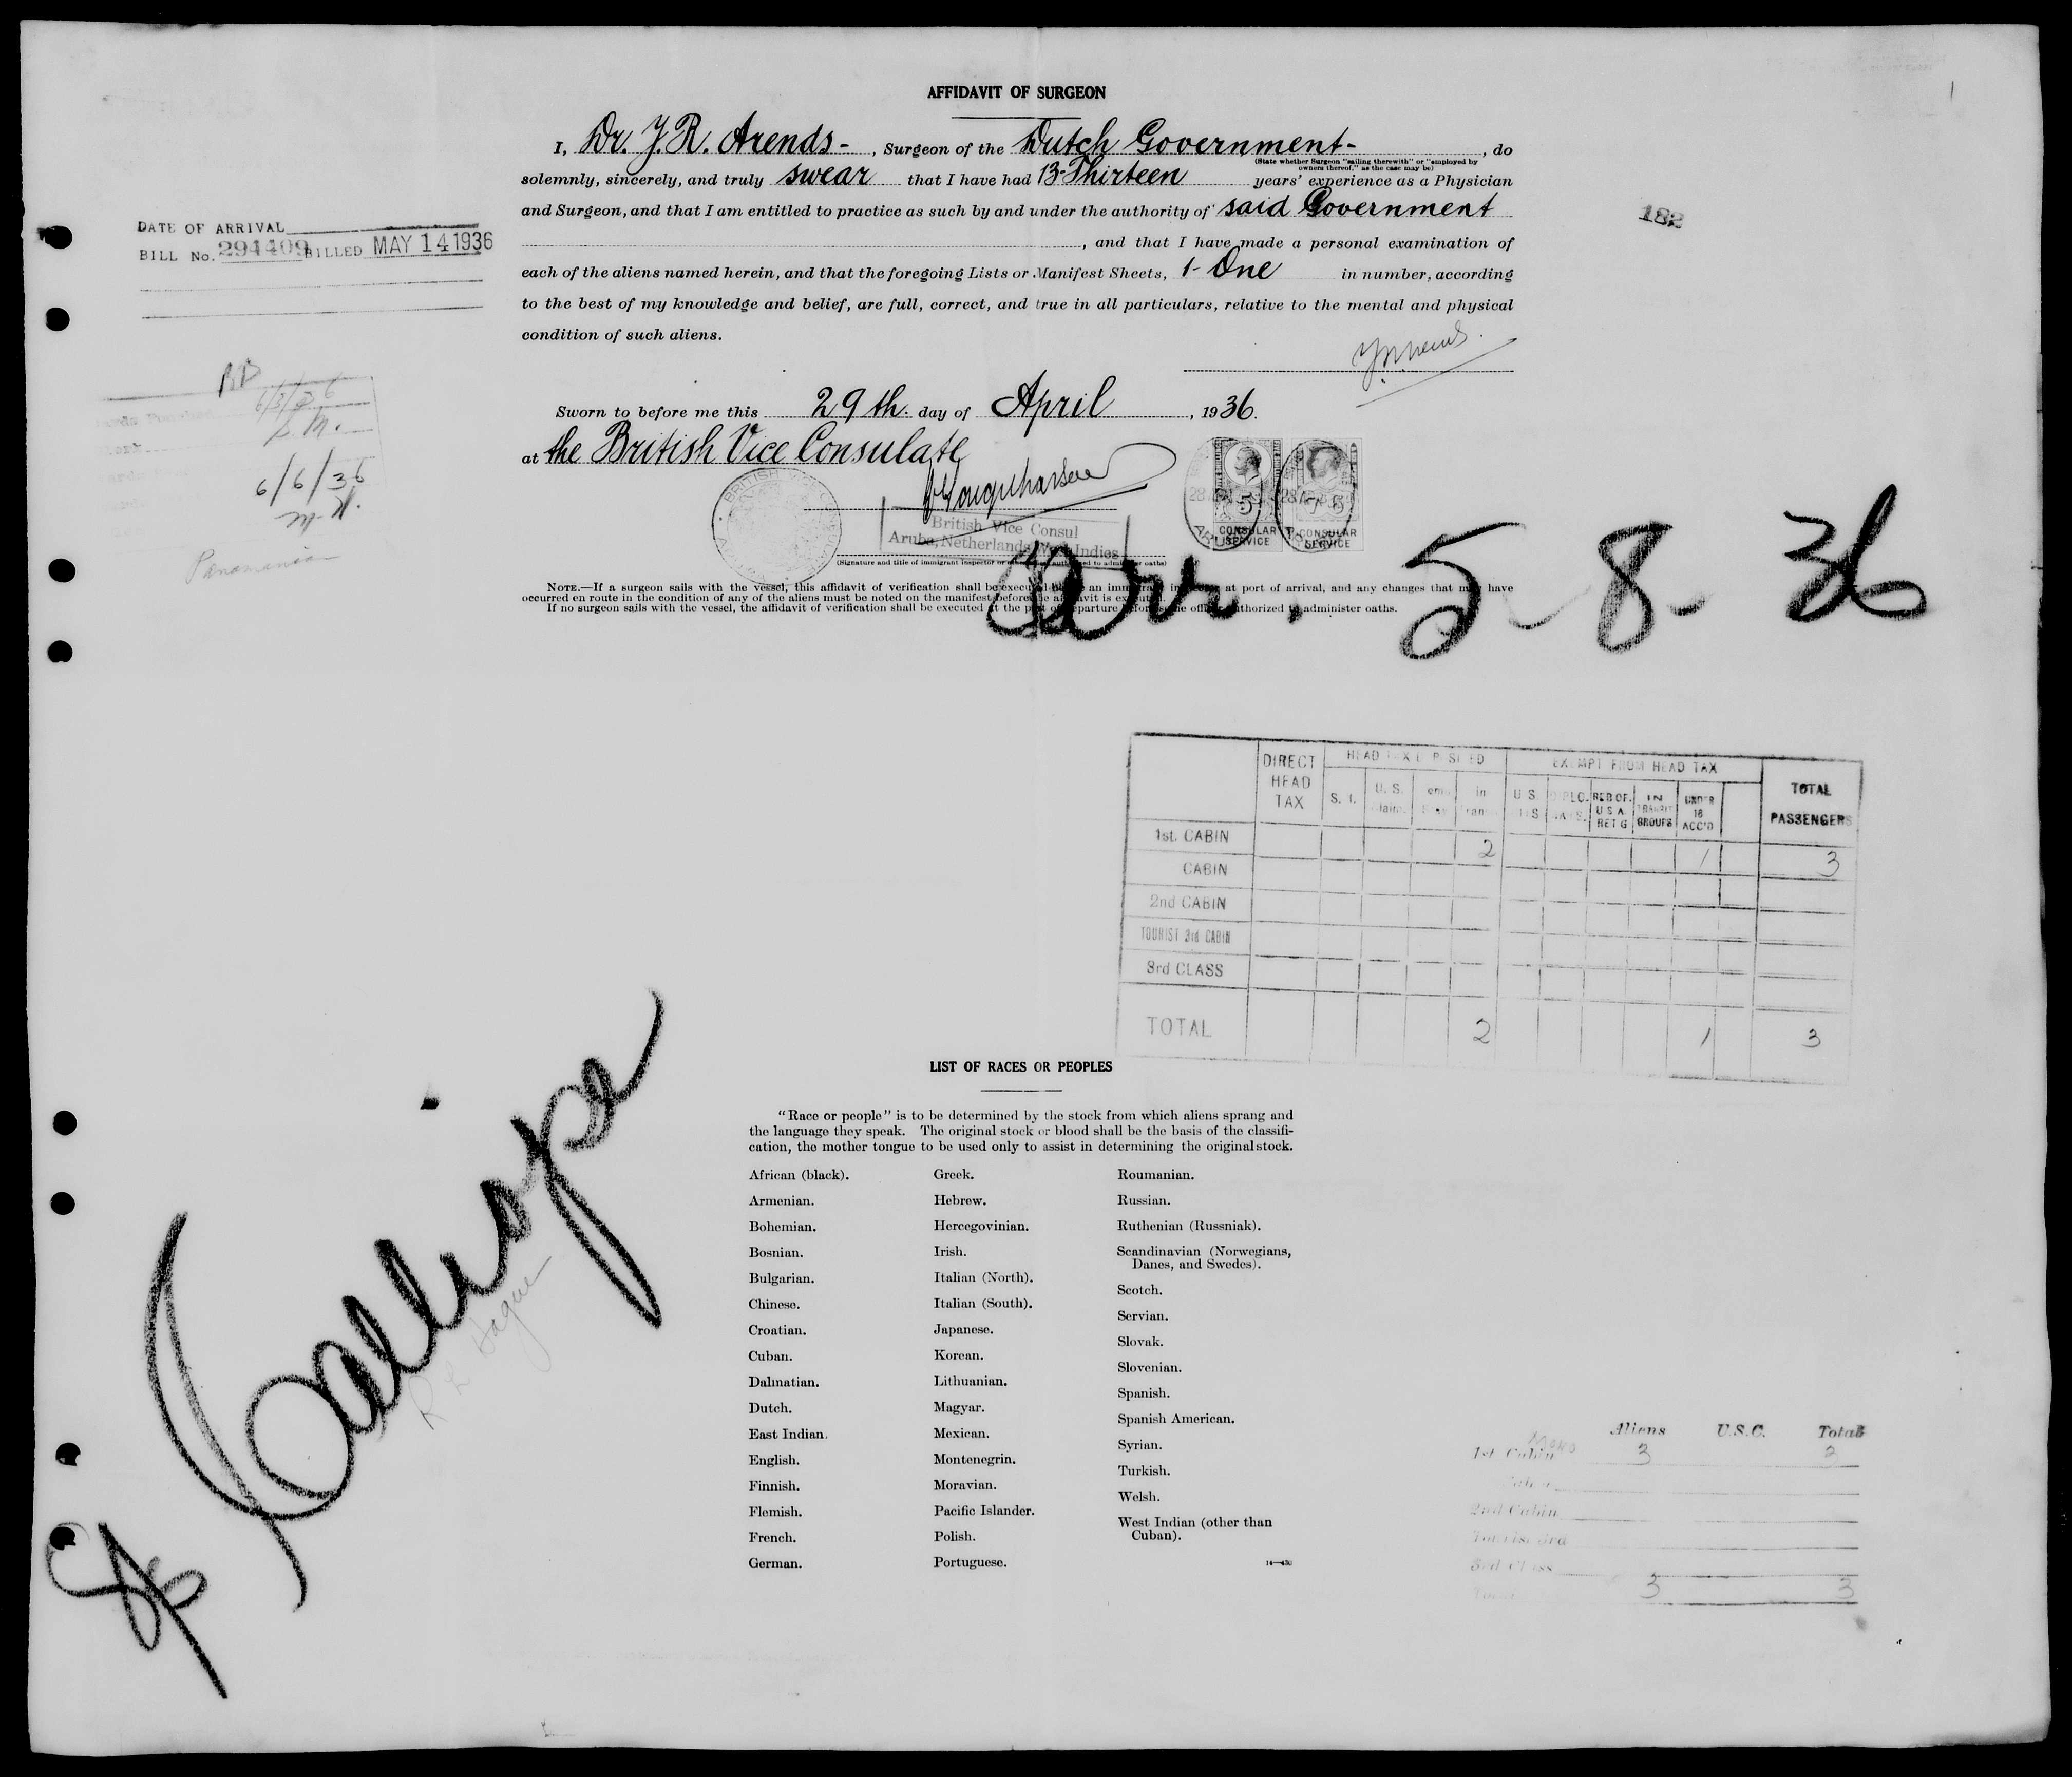 AFFIDAVIT OF SURGEON
I, Dr. J. R. Arends - , Surgeon of the Dutch Government - , do
(State whether Surgeon "sailing therewith" or "employed by
owners thereof," as the case may be)
solemnly, sincerely, and truly swear that I have had 13-Thirteen years' experience as a Physician
and Surgeon, and that I am entitled to practice as such by and under the authority of said Government
, and that I have made a personal examination of
each of the aliens named herein, and that the foregoing Lists or Manifest Sheets, 1- One in number, according
to the best of my knowledge and belief, are full, correct, and true in all particulars, relative to the mental and physical
condition of such aliens.
182
DATE OF ARRIVAL
BILL No. 294409 BILLED MAY 14 1936
6/3/36
L.M.
6/6/36
Panamanian
Sworn to before me this 29th. day of April , 1936.
at the British Vice Consulate
British Vice Consul
Aruba, Netherlands West Indies
5
CONSULAR
SERVICE
7 6
CONSULAR
SERVICE
(Signature and title of immigrant inspector or officer authorized to administer oaths)
NOTE.—If a surgeon sails with the vessel, this affidavit of verification shall be executed before an immigrant inspector at port of arrival, and any changes that may have
occurred en route in the condition of any of the aliens must be noted on the manifest before the affidavit is executed.
If no surgeon sails with the vessel, the affidavit of verification shall be executed at the port of departure before the officer authorized to administer oaths.
Arr. 5-8-36
DIRECT HEAD TAX
HEAD TAX DEPOSITED
EXEMPT FROM HEAD TAX
TOTAL PASSENGERS
S. I.
U. S.
in
U S
REB OF. U S A RET G
IN TRANSIT GROUPS
UNDER 16 ACC'D
1st. CABIN 2 1 3
CABIN
2nd CABIN
TOURIST 3rd CABIN
3rd CLASS
TOTAL 2 1 3
SS Calliope
R L Hague
LIST OF RACES OR PEOPLES
"Race or people" is to be determined by the stock from which aliens sprang and
the language they speak. The original stock or blood shall be the basis of the classifi-
cation, the mother tongue to be used only to assist in determining the original stock.
African (black).
Armenian.
Bohemian.
Bosnian.
Bulgarian.
Chinese.
Croatian.
Cuban.
Dalmatian.
Dutch.
East Indian.
English.
Finnish.
Flemish.
French.
German.
Greek.
Hebrew.
Hercegovinian.
Irish.
Italian (North).
Italian (South).
Japanese.
Korean.
Lithuanian.
Magyar.
Mexican.
Montenegrin.
Moravian.
Pacific Islander.
Polish.
Portuguese.
Roumanian.
Russian.
Ruthenian (Russniak).
Scandinavian (Norwegians,
Danes, and Swedes).
Scotch.
Servian.
Slovak.
Slovenian.
Spanish.
Spanish American.
Syrian.
Turkish.
Welsh.
West Indian (other than
Cuban).
14—430
Aliens U.S.C. Total
1st Cabin 3 3
2nd Cabin
Tourist 3rd
3rd Class
Total 3 3